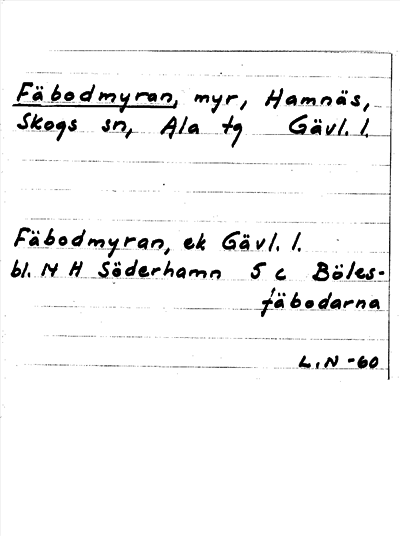 Fäbodmyran, myr, Hamnäs,
Skogs sn, Ala tg Gävl. l.
Fäbodmyran, ek Gävl. l.
bl. 14 H Söderhamn 5 c Böles-
fäbodarna
L. N -60